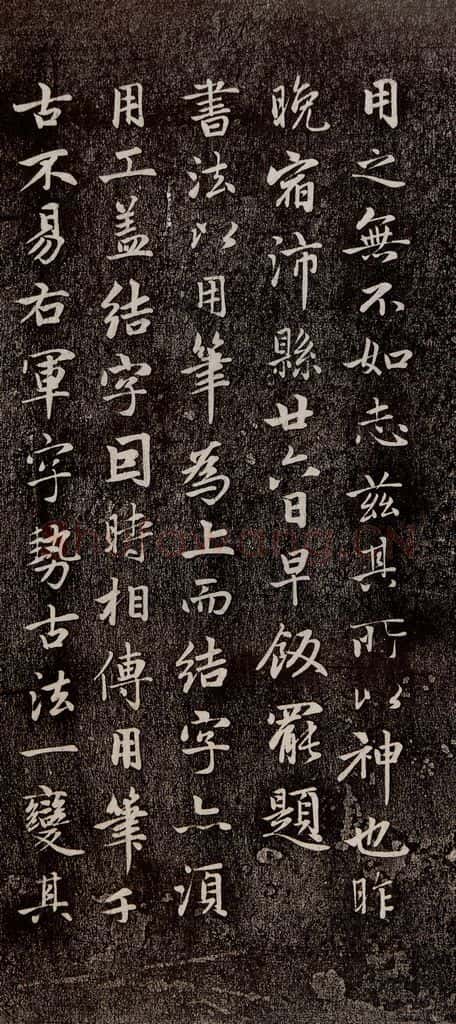 用之無不如志茲其所以神也昨
晚宿沛縣廿六日早飯罷題
書法以用筆為上而結字亦須
用工盖結字因時相傳用筆千
古不易右軍字勢古法一變其